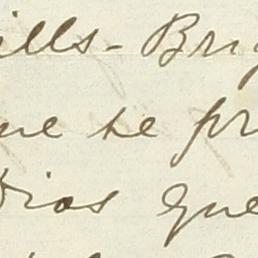 ills - Brig
ue se pr
Dios que